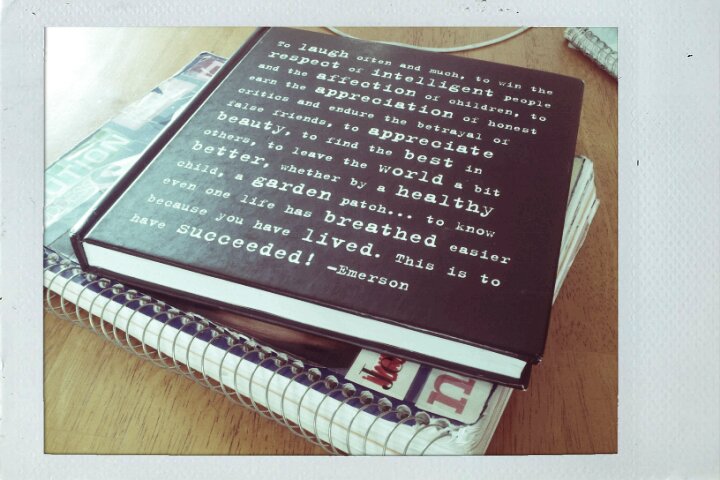 To laugh often and much, to win the
respect of intelligent people
and the affection of children, to
earn the appreciation of honest
critics and endure the betrayal of
false friends, to appreciate
beauty, to find the best in
others, to leave the world a bit
better, whether by a healthy
child, a garden patch... to know
even one life has breathed easier
because you have lived. This is to
have succeeded! -Emerson
n